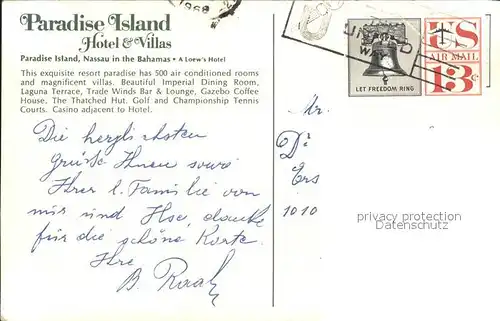 Paradise Island
Hotel & Villas
Paradise Island, Nassau in the Bahamas • A Loew's Hotel
This exquisite resort paradise has 500 air conditioned rooms
and magnificent villas. Beautiful Imperial Dining Room,
Laguna Terrace, Trade Winds Bar & Lounge, Gazebo Coffee
House. The Thatched Hut. Golf and Championship Tennis
Courts. Casino adjacent to Hotel.
1968
UNITED
WAY
LET FREEDOM RING
US
AIR MAIL
13c
Die herzlichsten
Grüße Ihnen sowie
Ihrer l. Familie von
mir und Ilse, danke
für die schöne Karte.
Ihre
B.
1010
privacy protection
Datenschutz